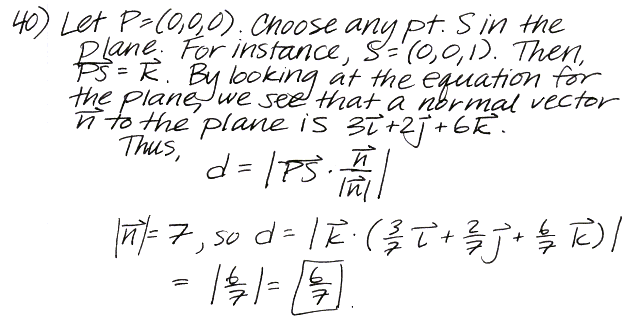 40) Let P=(0,0,0). Choose any pt. S in the
plane. For instance, S=(0,0,1). Then,
$\overrightarrow{PS} = \vec{k}$. By looking at the equation for
the plane, we see that a normal vector
$\vec{n}$ to the plane is $3\vec{i}+2\vec{j}+6\vec{k}$.
Thus,
$d = |\overrightarrow{PS} \cdot \frac{\vec{n}}{|\vec{n}|}|$
$|\vec{n}|=7$, so $d = |\vec{k} \cdot (\frac{3}{7}\vec{i} + \frac{2}{7}\vec{j} + \frac{6}{7}\vec{k})|$
$= |\frac{6}{7}| = \boxed{\frac{6}{7}}$.